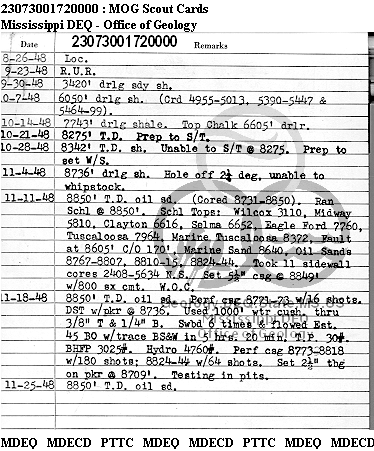 23073001720000 : MOG Scout Cards
Mississippi DEQ - Office of Geology
Date 23073001720000 Remarks
8-26-48 Loc.
9-23-48 R.U.R.
9-30-48 3420' drlg sdy sh.
0-7-48 6050' drlg sh. (Crd 4955-5013, 5390-5447 &
5464-99).
10-14-48 7743' drlg shale. Top Chalk 6605' drlr.
10-21-48 8275' T.D. Prep to S/T.
10-28-48 8342' T.D. sh. Unable to S/T @ 8275. Prep to
set W/S.
11-4-48 8736' drlg sh. Hole off 2¼ deg, unable to
whipstock.
11-11-48 8850' T.D. oil sd. (Cored 8731-8850). Ran
Schl @ 8850'. Schl Tops: Wilcox 3110, Midway
5810, Clayton 6616, Selma 6652, Eagle Ford 7760,
Tuscaloosa 7964, Marine Tuscaloosa 8372, Fault
at 8605' C/O 170', Marine Sand 8640, Oil Sands
8767-8807, 8810-15, 8824-44. Took 11 sidewall
cores 2408-5634 N.S. Set 5½" csg @ 8849'
w/800 sx cmt. W.O.C.
11-18-48 8850' T.D. oil sd. Perf csg 8771-73 w/16 shots.
DST w/pkr @ 8736. Used 1000' wtr cush. thru
3/8" T & 1/4" B. Swbd 6 times & flowed Est.
45 BO w/trace BS&W in 5 hrs. 20 min. T.P. 30#
BHFP 3025#. Hydro 4760#. Perf csg 8773-8818
w/180 shots; 8824-44 w/64 shots. Set 2½" tbg
on pkr @ 8709'. Testing in pits.
11-25-48 8850' T.D. oil sd.
MDEQ MDECD PTTC MDEQ MDECD PTTC MDEQ MDECD